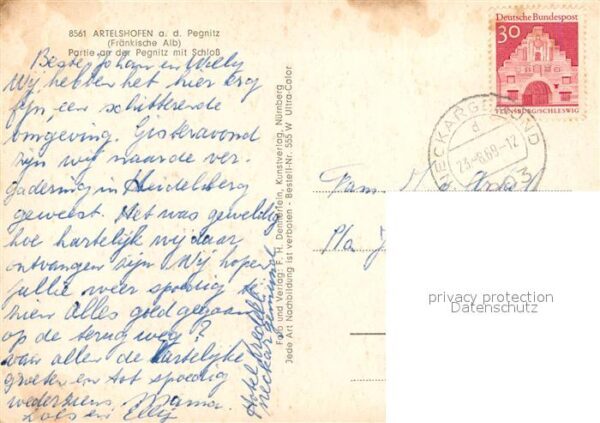 8561 ARTELSHOFEN a. d. Pegnitz
(Fränkische Alb)
Partie an der Pegnitz mit Schloß
Beste Johan en Willy
Wij hebben het hier erg
fijn, een schitterende
omgeving. Gisteravond
zijn wij naar de ver-
gadering in Heidelberg
geweest. Het was geweldig
hoe hartelijk wij daar
ontvangen zijn. Wij hopen
jullie weer spoedig te
hier Alles goed gegaan
op de terug weg?
van allen de hartelijke
groeten en tot spoedig
wederziens Mama.
en Elly
Hotel
Neckargemünd
Foto und Verlag: F. H. Dennerlein, Kunstverlag, Nürnberg
Jede Art Nachbildung ist verboten - Bestell-Nr. 555 W Ultra-Color
Deutsche Bundespost
30
FLENSBURG/SCHLESWIG
NECKARGEMÜND
d
23.-6.69-12
6903
Fam.
privacy protection
Datenschutz